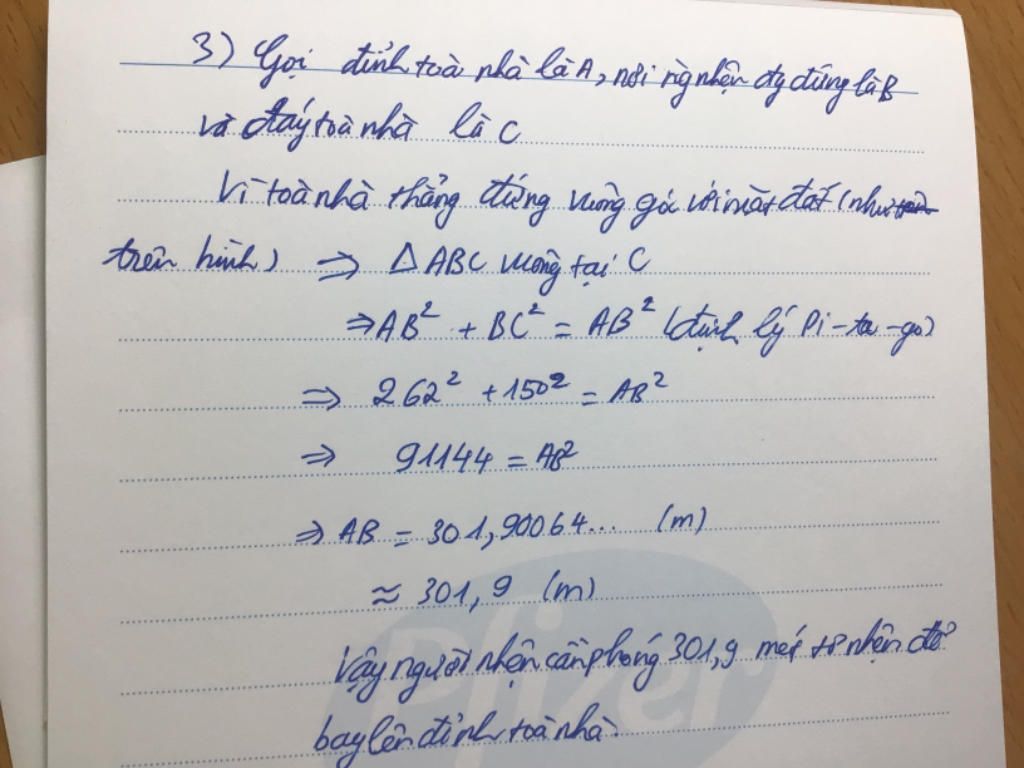 3) Gọi đỉnh toà nhà là A, nơi ng nhện đg đứng là B
và đáy toà nhà là C
Vì toà nhà thẳng đứng vuông góc với mặt đất (như
trên hình) ⇒ △ABC vuông tại C
⇒ AB² + BC² = AB² (định lý Pi-ta-go)
⇒ 262² + 150² = AB²
⇒ 91144 = AB²
⇒ AB = 301,90064... (m)
≈ 301,9 (m)
Vậy người nhện cần phóng 301,9 mét tơ nhện để
bay lên đỉnh toà nhà.
Pfizer